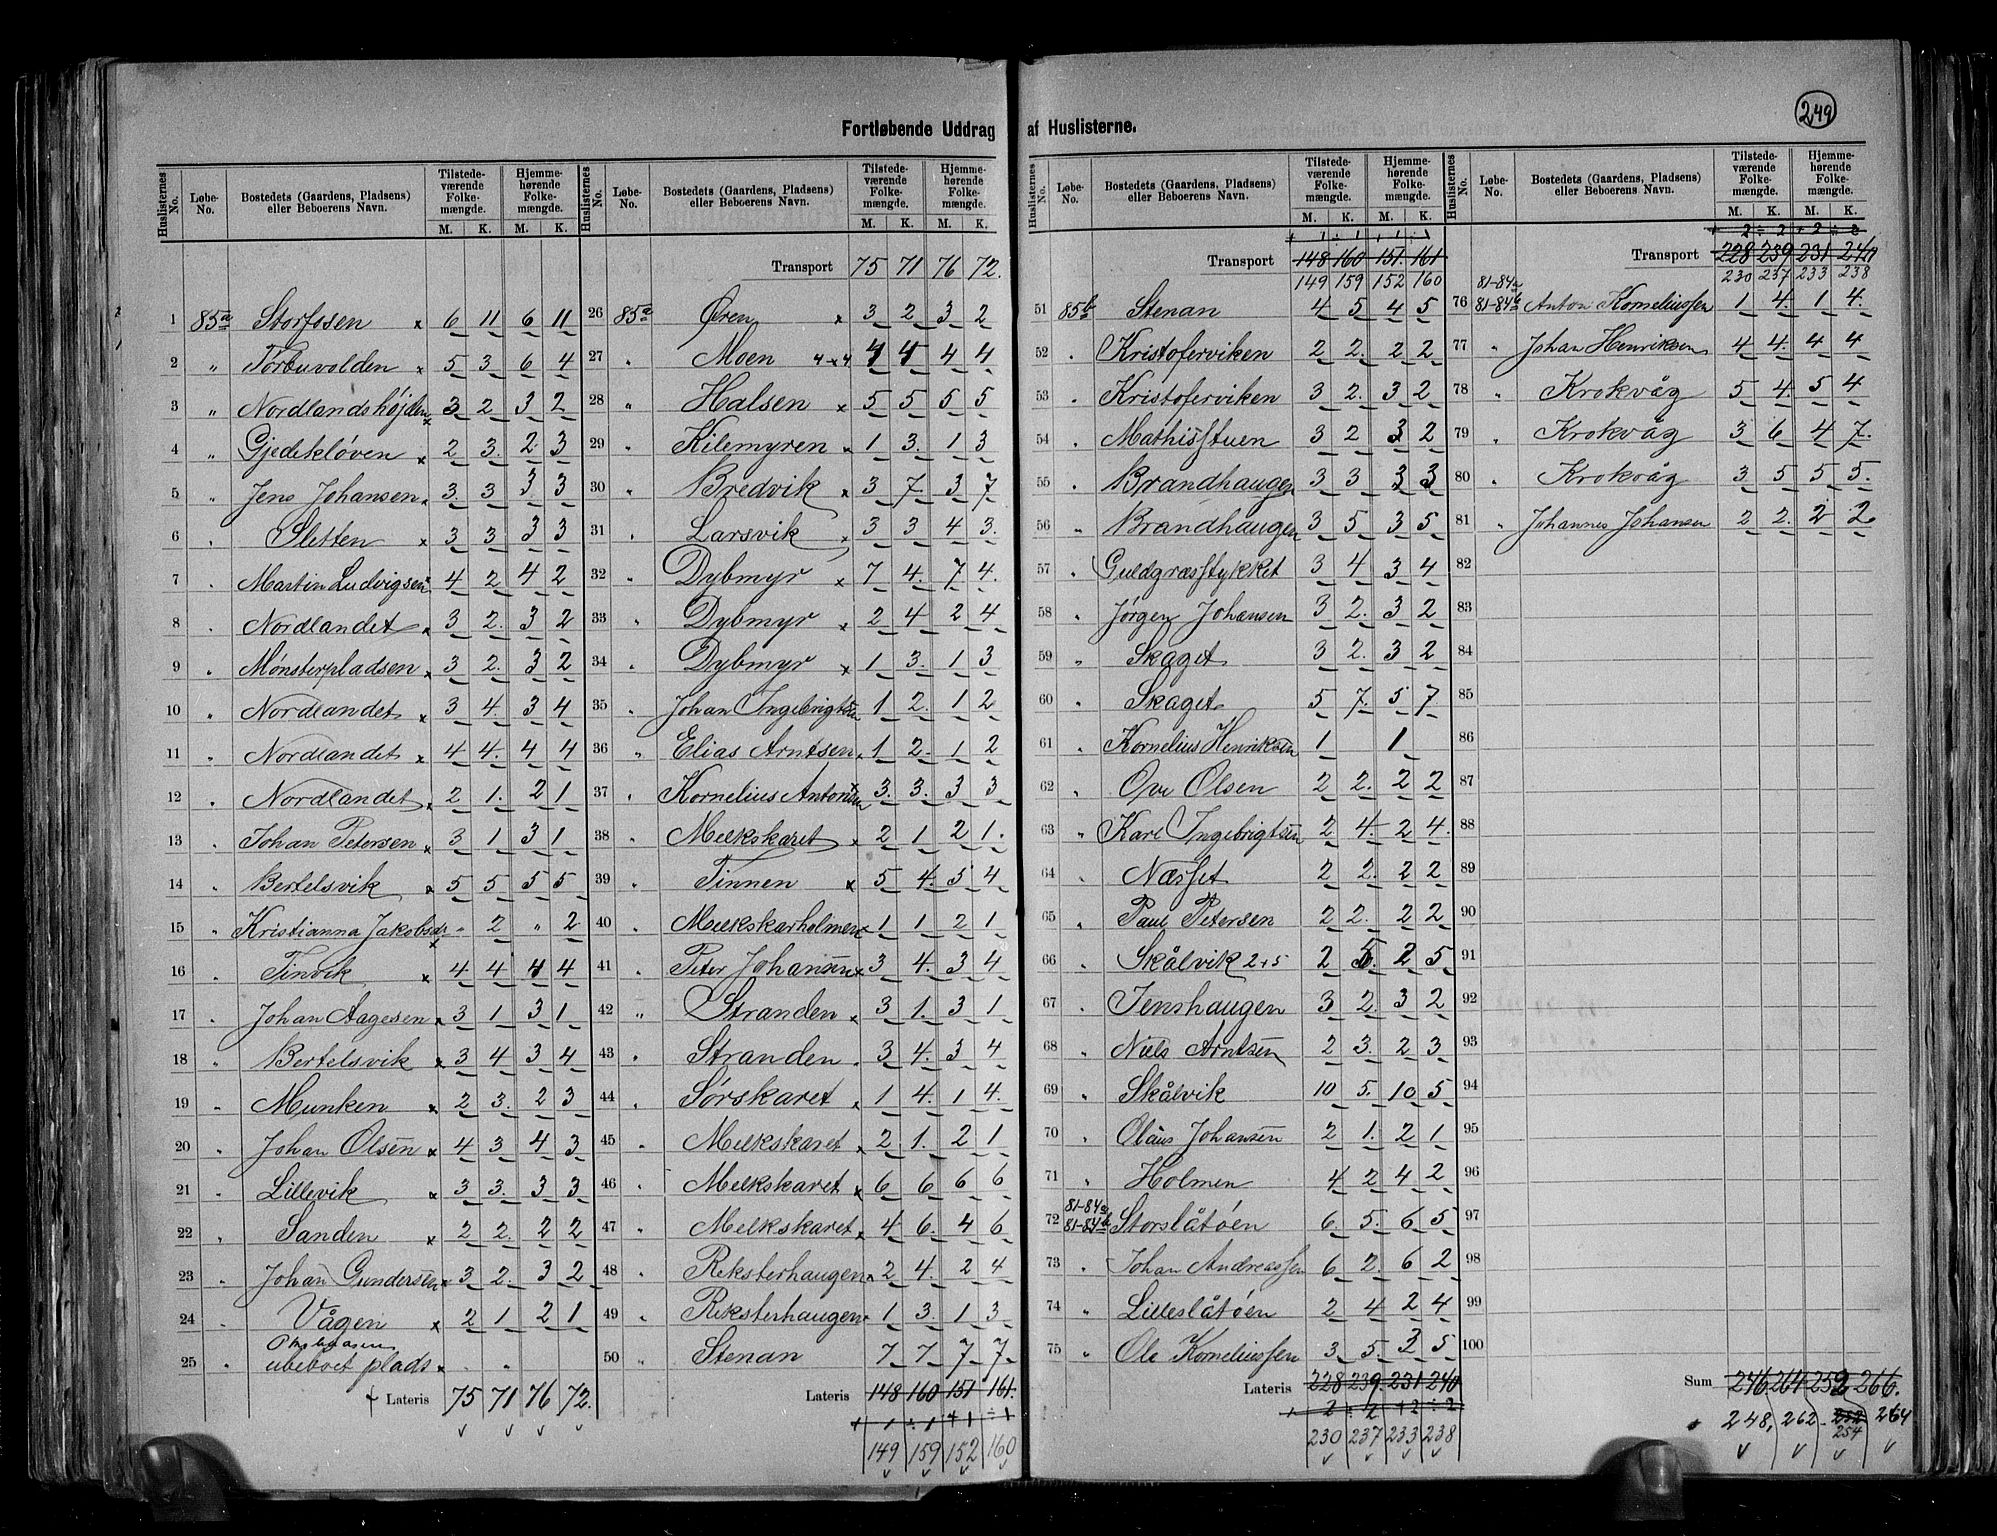 249
Fortløbende Uddrag af Huslisterne.
Huslisternes No. Løbe-No. Bostedets (Gaardens, Pladsens) eller Beboerens Navn. Tilstedeværende Folkemængde. M. K. Hjemmehørende Folkemængde. M. K.
1 85a Storfosen x 6 11 6 11
2 " Torbuvolden x 5 3 6 4
3 " Nordlandshøjden x 3 2 3 2
4 " Gjedekløven x 2 3. 2 3
5 " Jens Johansen x 3 3 3 3
6 " Sletten x 3 3 3 3
7 " Martin Ludvigsen x 4 2 4 2
8 " Nordlandet x 3 2. 3 2
9 " Mønsterpladsen x 3 2. 3 2
10 " Nordlandet x 3 4 3 4
11 " Nordlandet x 4 4. 4 4
12 " Nordlandet x 2 1. 2 1
13 " Johan Petersen x 3 1 3 1
14 " Bertelsvik x 5 5 5 5
15 " Kristianna Jakobsdr x " 2 " 2
16 " Tinvik x 4 4 4 4
17 " Johan Aagesen x 3 1 3 1
18 " Bertelsvik x 3 4 3 4
19 " Munken x 2 3. 2 3
20 " Johan Olsen x 4 3 4 3
21 " Lillevik x 3 3. 3 3
22 " Sanden x 2 2. 2 2
23 " Johan Gundersen x 3 2. 3 2
24 " Vågen x 2 1 2 1
25 " ubeboet plads x " "
Lateris 75 71 76 72.
Huslisternes No. Løbe-No. Bostedets (Gaardens, Pladsens) eller Beboerens Navn. Tilstedeværende Folkemængde. M. K. Hjemmehørende Folkemængde. M. K.
Transport 75 71 76 72.
26 85a Øren x 3 2 3 2
27 " Moen 4 x 4 4 4 4 4
28 " Halsen x 5 5 5 5
29 " Kilemyren x 1 3. 1 3
30 " Bredvik x 3 7 3 7
31 " Larsvik x 3 3 4 3.
32 " Dybmyr x 7 4. 7 4.
33 " Dybmyr x 2 4 2 4
34 " Dybmyr x 1 3. 1 3
35 " Johan Ingebrigtsen 1 2. 1 2
36 " Elias Arntsen x 1 2. 1 2
37 " Kornelius Antonsen x 3. 3. 3 3
38 " Melkskaret x 2 1 2 1.
39 " Tinnen x 5 4. 5 4
40 " Melkskarholmen x 1 1 2 1
41 " Peter Johansen x 3 4. 3 4
42 " Stranden x 3 1. 3 1
43 " Stranden x 3 4. 3 4
44 " Sørskaret x 1 4. 1 4.
45 " Melkskaret x 2 1. 2 1
46 " Melkskaret x 6 6 6 6
47 " Melkskaret x 4 6. 4 6
48 " Reksterhaugen x 2 4. 2 4
49 " Reksterhaugen x 1 3. 1 3
50 " Stenan 7 7. 7 7.
Lateris 148 160 151 161.
+ 1 ÷ 1 + 1 ÷ 1
149 159 152 160
Huslisternes No. Løbe-No. Bostedets (Gaardens, Pladsens) eller Beboerens Navn. Tilstedeværende Folkemængde. M. K. Hjemmehørende Folkemængde. M. K.
+ 1 ÷ 1 + 1 ÷ 1
Transport 148 160 151. 161
149 159 152 160
51 85b Stenan 4 5 4 5
52 " Kristoferviken 2 2. 2 2
53 " Kristoferviken 3 2. 3 2
54 " Mathisstuen 3 2 3 2
55 " Brandhaugen 3 3 3 3
56 " Brandhaugen 3 5 3 5
57 " Guldgræsstykket 3 4 3 4
58 " Jørgen Johansen 3 2. 3 2
59 " Skaget 3 2. 3 2
60 " Skaget 5 7. 5 7
61 " Kornelius Henriksen 1 1
62 " Ove Olsen 2 2. 2 2
63 " Karl Ingebrigtsen 2 4. 2 4.
64 " Næsset 2 2. 2 2
65 " Paul Petersen 2 2. 2 2
66 " Skålvik 2+5 2 5. 2 5
67 " Jenshaugen 3 2. 3 2
68 " Niels Arntsen 2 3. 2 3
69 " Skålvik 10 5. 10 5
70 " Olaus Johansen 2 1. 2 1
71 " Holmen 4 2 4 2
72 81-84a 81-84b Storslåtøen 6. 5. 6 5
73 " Johan Andreassen 6 2. 6 2
74 " Lilleslåtøen 2 4 2 4
75 " Ole Korneliussen 3 5. 3 5
Lateris 228 239. 231 240
+ 2 ÷ 2 + 2 ÷ 2
230 237 233 238
Huslisternes No. Løbe-No. Bostedets (Gaardens, Pladsens) eller Beboerens Navn. Tilstedeværende Folkemængde. M. K. Hjemmehørende Folkemængde. M. K.
+ 2 ÷ 2 + 2 ÷ 2
Transport 228 239 231 240
230 237 233 238
76 81-84a 81-84b Anton Korneliussen 1 4. 1 4.
77 " Johan Henriksen 4 4. 4 4
78 " Krokvåg 5 4. 5 4
79 " Krokvåg 3 6 4 7.
80 " Krokvåg 3 5 5 5.
81 " Johannes Johansen 2 2. 2 2
82
83
84
85
86
87
88
89
90
91
92
93
94
95
96
97
98
99
100
Sum 246 264 252 266.
248, 262 252 264
254